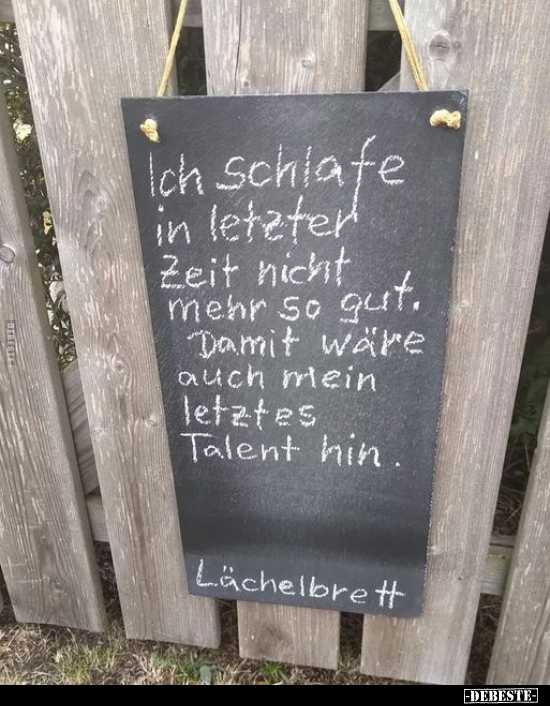 Ich schlafe
in letzter
Zeit nicht
mehr so gut.
Damit wäre
auch mein
letztes
Talent hin.
Lächelbrett
-DEBESTE-